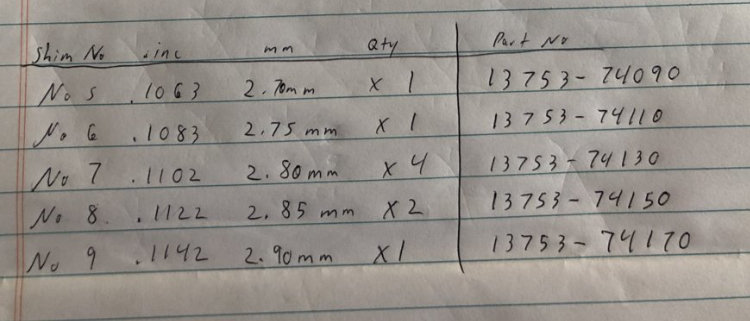 Shim No .inc mm Qty Part No
No 5 .1063 2.70mm x 1 13753-74090
No 6 .1083 2.75 mm x 1 13753-74110
No 7 .1102 2.80mm x 4 13753-74130
No 8. .1122 2.85 mm x 2 13753-74150
No 9 .1142 2.90mm x 1 13753-74170